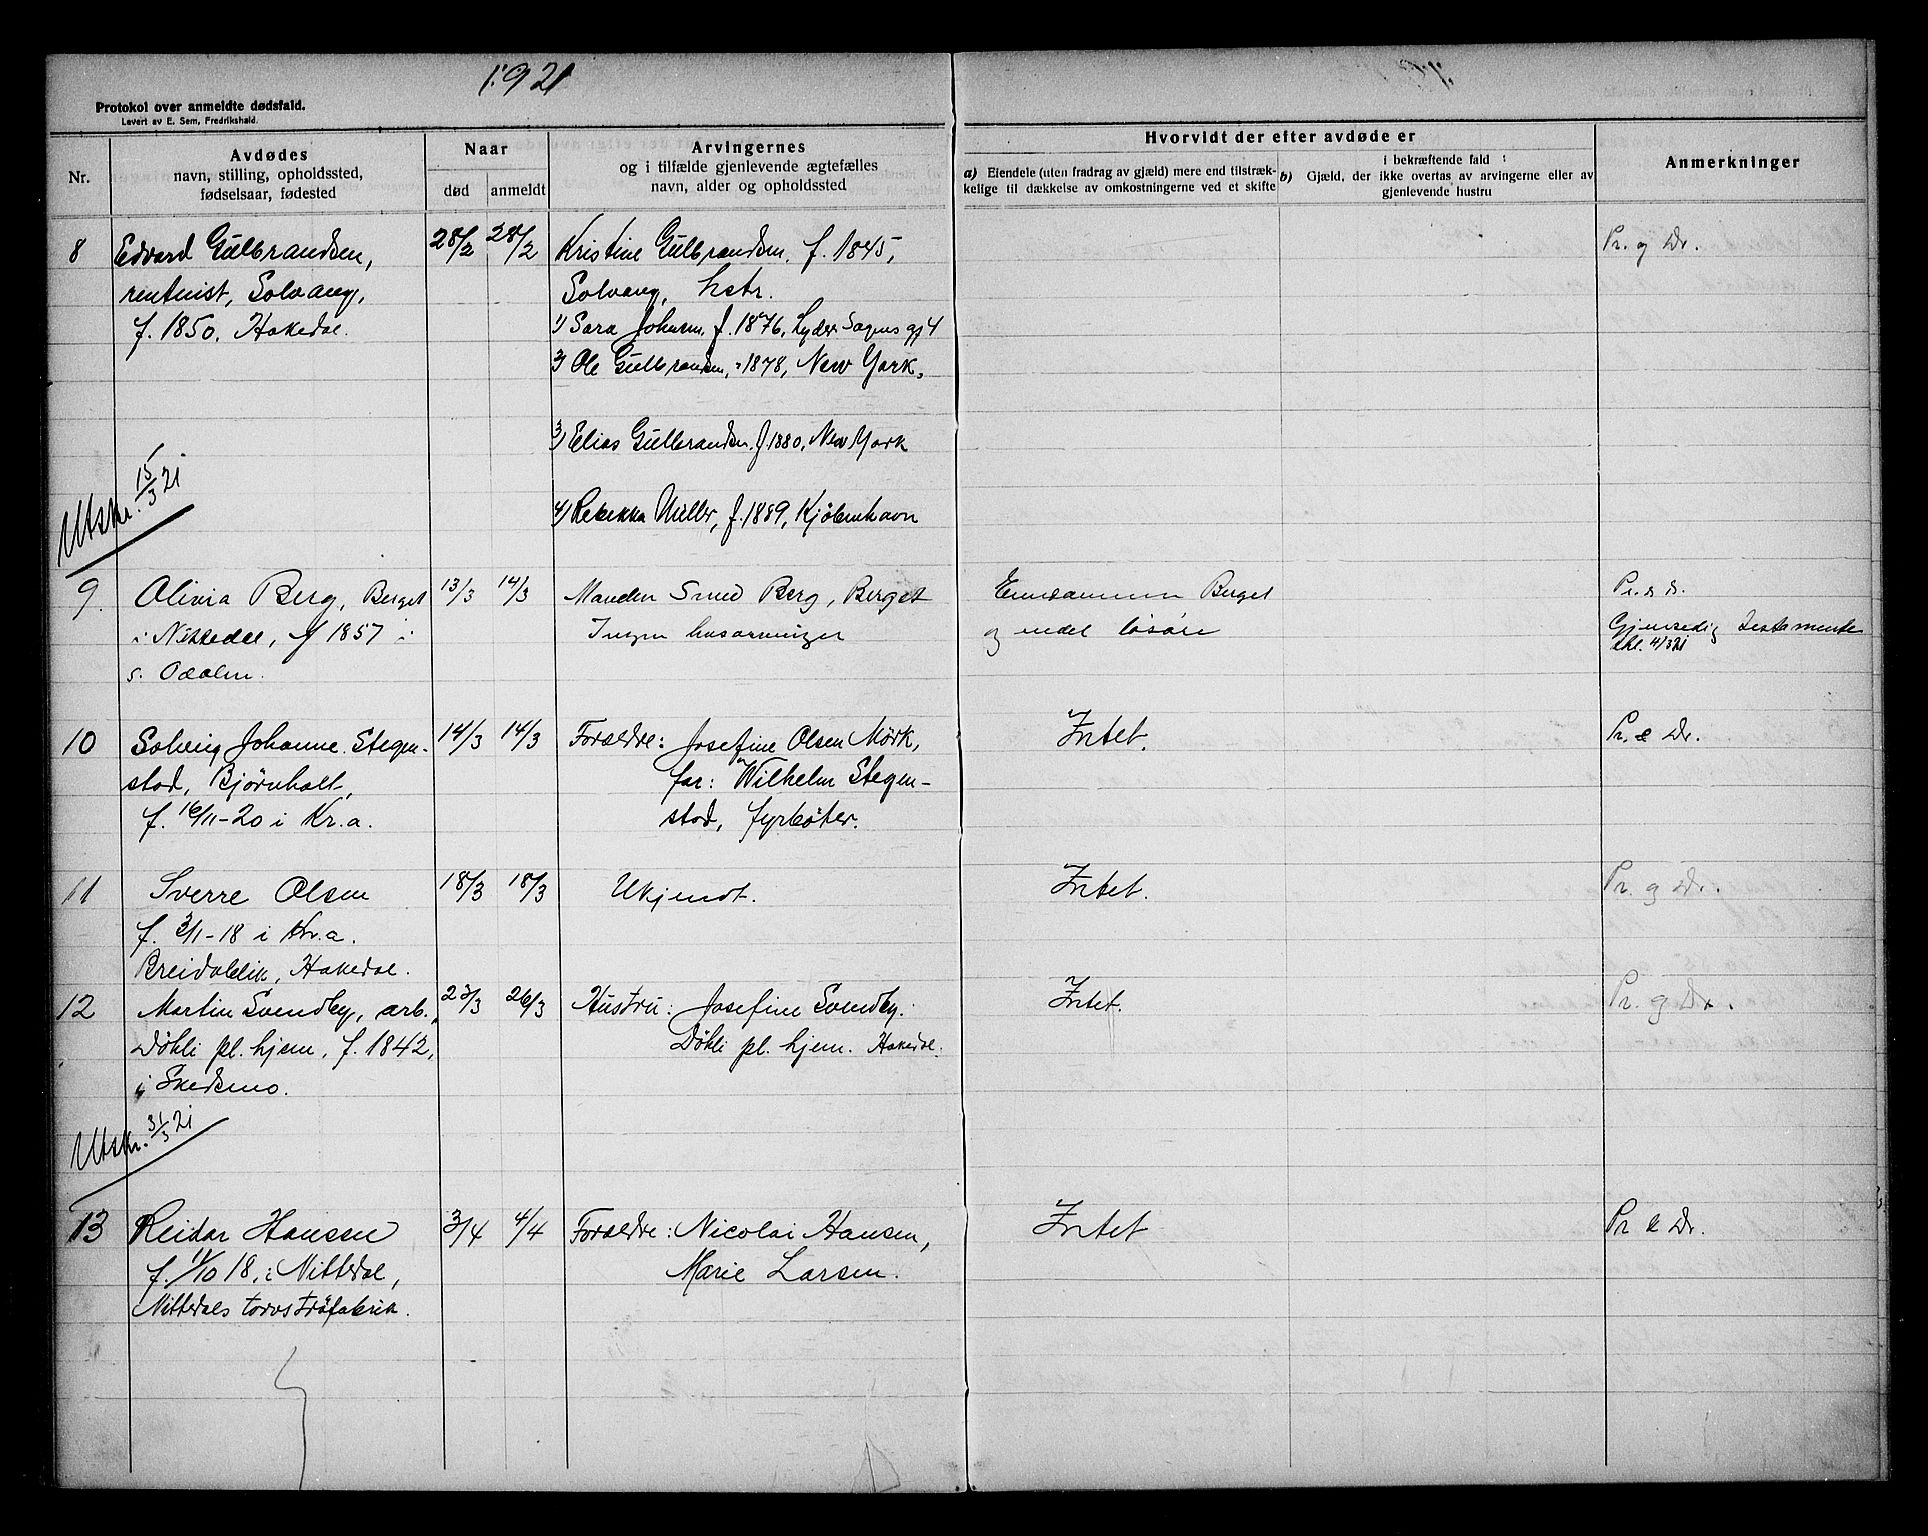 1921
Protokol over anmeldte dødsfald.
Levert av E. Sem, Fredrikshald.
Nr.
Avdødes
navn, stilling, opholdssted,
fødselsaar, fødested
Naar
død
anmeldt
Arvingernes
og i tilfælde gjenlevende ægtefælles
navn, alder og opholdssted
Hvorvidt der efter avdøde er
a) Eiendele (uten fradrag av gjæld) mere end tilstræk-
kelige til dækkelse av omkostningerne ved et skifte
b) i bekræftende fald :
Gjæld, der ikke overtas av arvingerne eller av
gjenlevende hustru
Anmerkninger
8
Edvard Gulbrandsen,
rentenist, Solvang,
f. 1850. Hakedal.
28/2
28/2
Kristine Gulbrandsen. f. 1845,
Solvang, hstr.
1) Sara Johnsen. f. 1876, Lyder Sagens gt 4
2) Ole Gulbrandsen, " 1878, New York.
3) Elias Gulbrandsen. f. 1880, New York
4) Rebekka Müller, f. 1889, Kjøbenhavn
Pr. og Dr.
Utskr. 15/3 21
9.
Olivia Berg, Berget
i Nittedal, f 1857 i
s. Odalen.
13/3
14/3
Manden Smed Berg, Berget
Ingen livsarvinger
Eiendommen Berget
og endel løsøre
Pr. & D.
Gjensidig testamente
4/3 21
10
Solveig Johanne Stegen-
stad, Bjørnholt,
f. 16/11-20 i Kr.a.
14/3
14/3
Forældre: Josefine Olsen Mørk,
far: Wilhelm Stegen-
stad, fyrbøter.
Intet.
Pr. & Dr.
11
Sverre Olsen
f. 3/11-18 i Kr.a.
Breidablik, Hakedal.
18/3
18/3
Ukjendt.
Intet.
Pr. og Dr.
12
Martin Svendby, arb.,
Døhli pl. hjem, f. 1842,
i Skedsmo.
23/3
26/3
Hustru: Josefine Svendby.
Døhli pl. hjem. Hakedal.
Intet.
Pr. og Dr.
Utskr. 31/3 21
13
Reidar Hansen
f. 1/10 18, i Nittedal,
Nittedals torvstrøfabrik.
3/4
4/4
Forældre: Nicolai Hansen,
Marie Larsen.
Intet
Pr & Dr.